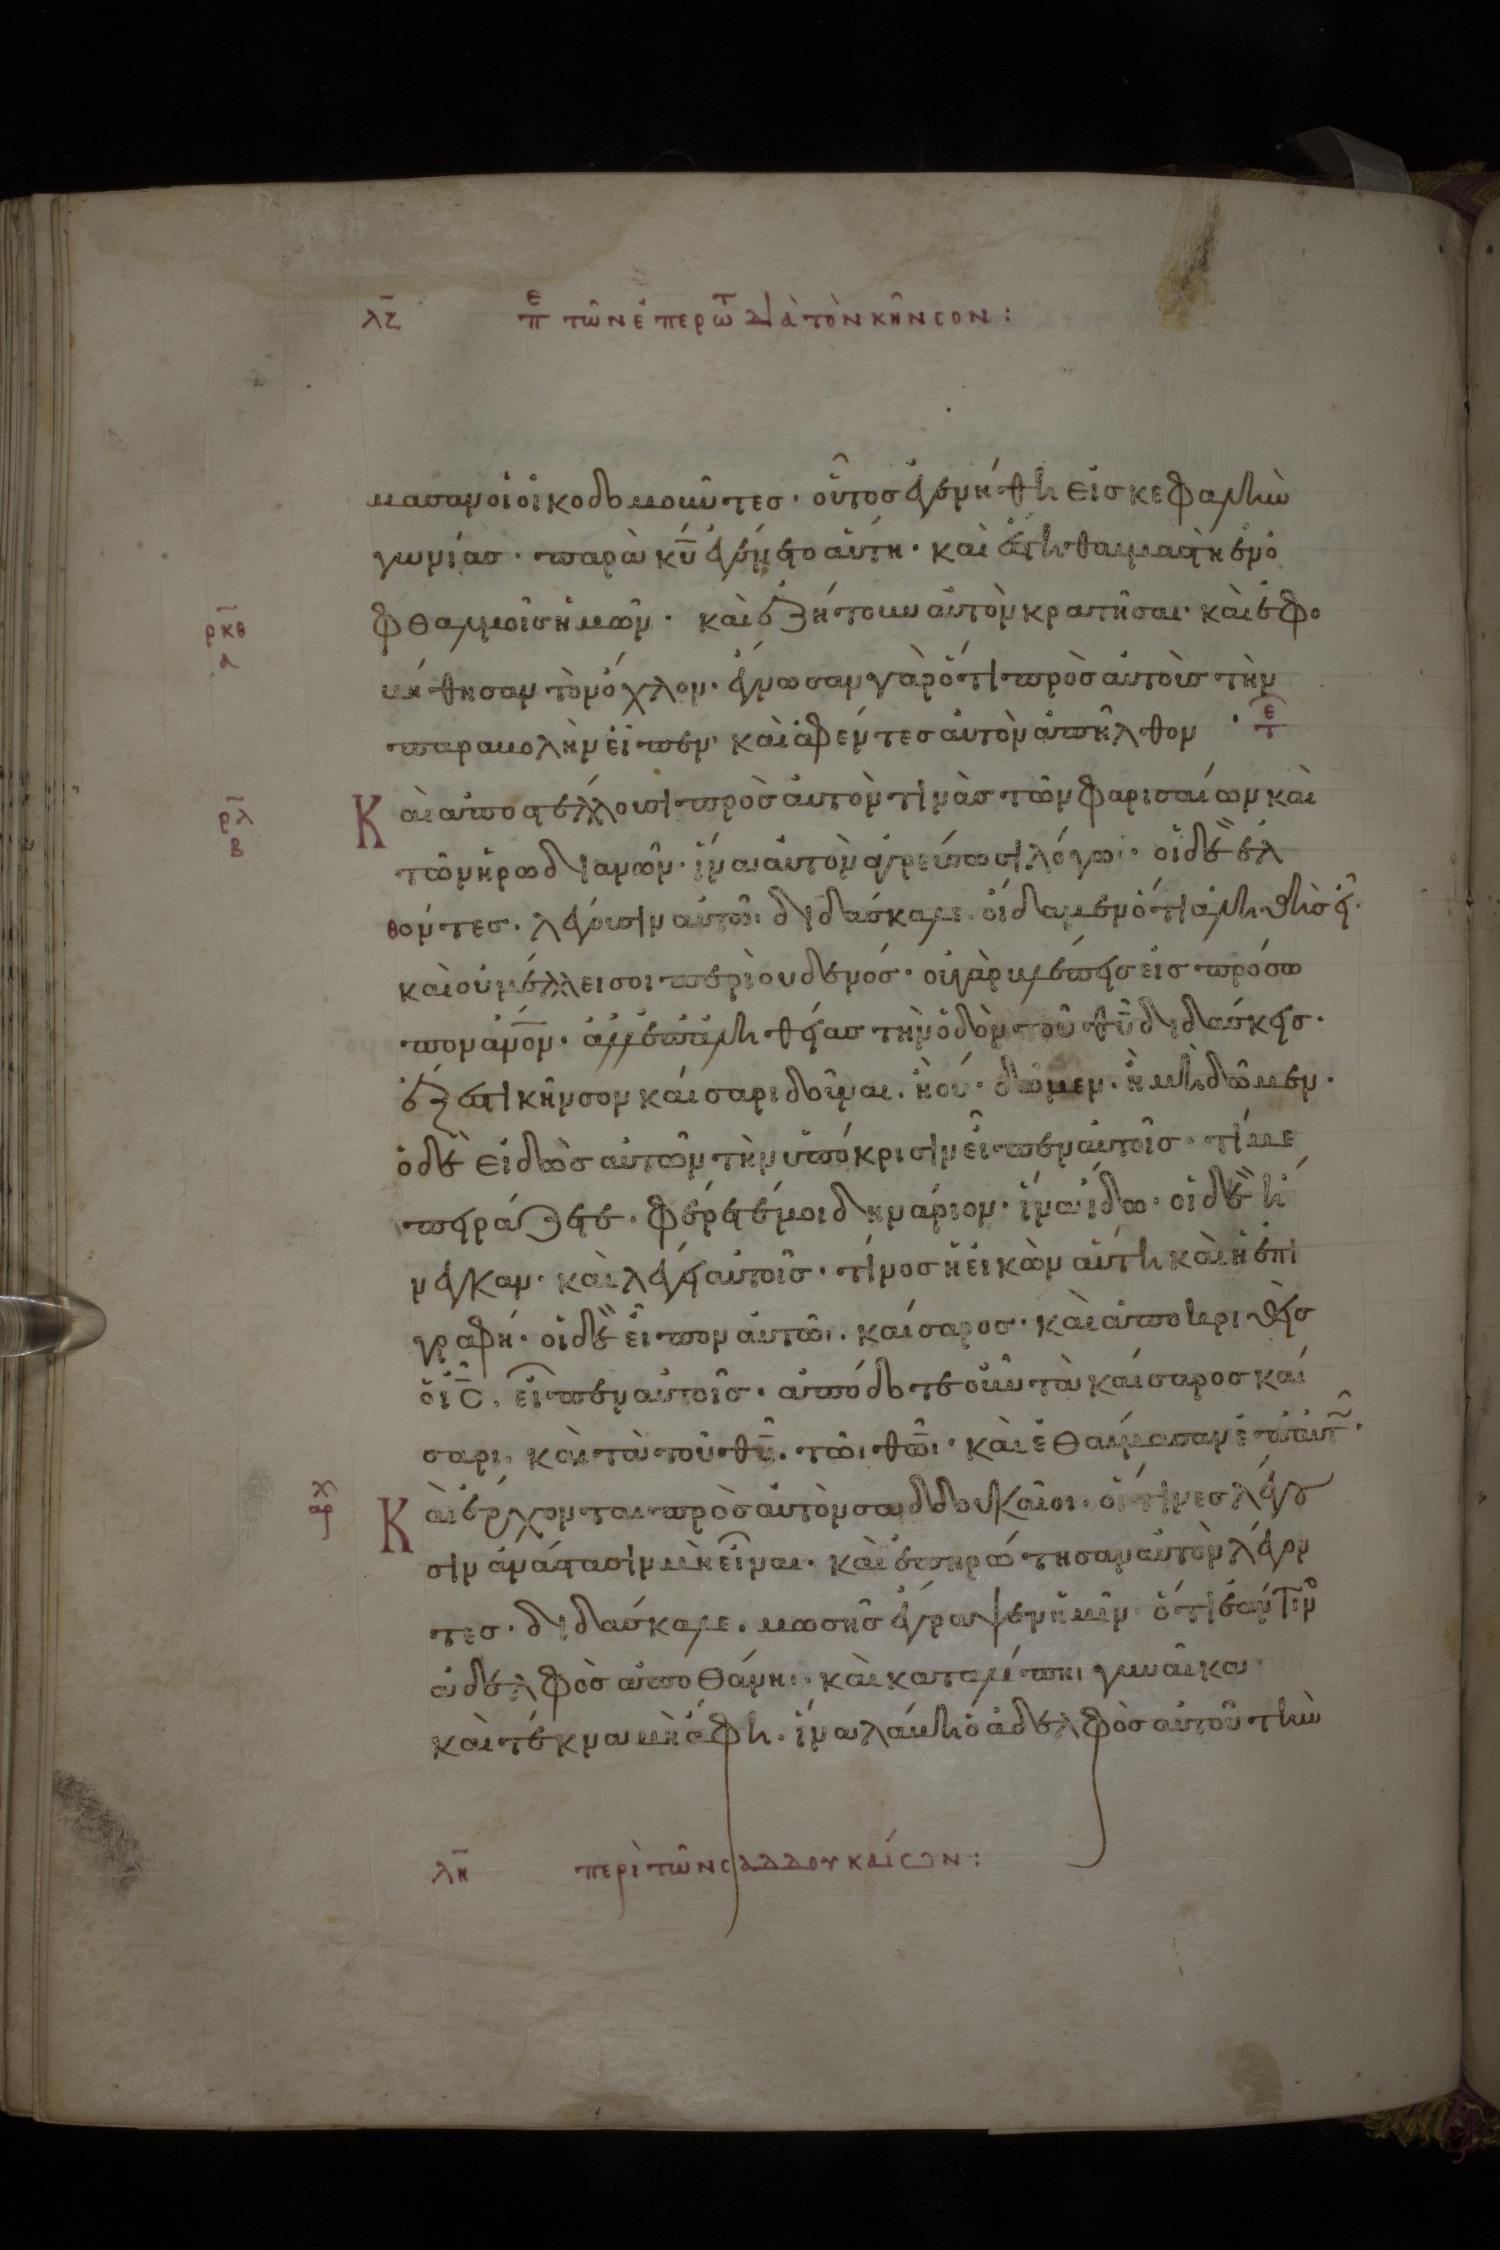 λζ π̅ε τῶν ἐπερωτ̅ διὰ τὸν κῆνσον :
μασαν οἱ οἰκοδομοῦντες · οὗτος ἐγενήθη εἰς κεφαλὴν
γωνίας · παρὰ κ̅υ̅ ἐγένετο αὕτη · καὶ ἔστιν θαυμαστὴ ἐν ὀ
φθαλμοῖς ἡμῶν · καὶ ἐζήτουν αὐτὸν κρατῆσαι · καὶ ἐφο
ρκθ α
βήθησαν τὸν ὄχλον · ἔγνωσαν γὰρ ὅτι πρὸς αὐτοὺς τὴν
παραβολὴν εἶπεν · καὶ ἀφέντες αὐτὸν ἀπῆλθον · τε
ρλ β
Καὶ ἀποστέλλουσι πρὸς αὐτὸν τινὰς τῶν φαρισαίων καὶ
τῶν ἡρωδιανῶν · ἵνα αὐτὸν ἀγρεύσωσι λόγωι · οἱ δὲ ἐλ
θόντες · λέγουσιν αὐτῶι διδάσκαλε · οἴδαμεν ὅτι ἀληθὴς εἶ ·
καὶ οὐ μέλλει σοι περὶ οὐδενός · οὐ γὰρ βλέπεις εἰς πρόσω
πον ἀν̅ο̅ν · ἀλλ' ἐπ' ἀληθείας τὴν ὁδὸν τοῦ θ̅υ̅ διδάσκεις ·
ἔξεστι κῆνσον καίσαρι δοῦναι · ἢ οὔ · δῶμεν · ἢ μὴ δῶμεν ·
ὁ δὲ εἰδὼς αὐτῶν τὴν ὑπόκρισιν εἶπεν αὐτοῖς · τί με
πειράζετε · φέρετέ μοι δηνάριον · ἵνα ἴδω · οἱ δὲ ἤ
νεγκαν · καὶ λέγει αὐτοῖς · τίνος ἡ εἰκὼν αὕτη καὶ ἡ ἐπι
γραφή · οἱ δὲ εἶπον αὐτῶι · καίσαρος · καὶ ἀποκριθεὶς
ὁ ι̅ς̅ · εἶπεν αὐτοῖς · ἀπόδοτε οὖν τὰ καίσαρος καί
σαρι · καὶ τὰ τοῦ θ̅υ̅ · τῶι θ̅ω̅ι · καὶ ἐθαύμασαν ἐπ' αὐτ̅ ·
Καὶ ἔρχονται πρὸς αὐτὸν σαδδουκαῖοι · οἵτινες λέγου
σιν ἀνάστασιν μὴ εἶναι · καὶ ἐπηρώτησαν αὐτὸν λέγον
τες · διδάσκαλε · μωσῆς ἔγραψεν ἡμῖν · ὅτι ἐάν τιν
ἀδελφὸς ἀποθάνηι · καὶ καταλίπηι γυναῖκα ·
καὶ τέκνα μὴ ἀφῆ · ἵνα λάβη ὁ ἀδελφὸς αὐτοῦ τὴν
λη περὶ τῶν σαδδουκαίων :